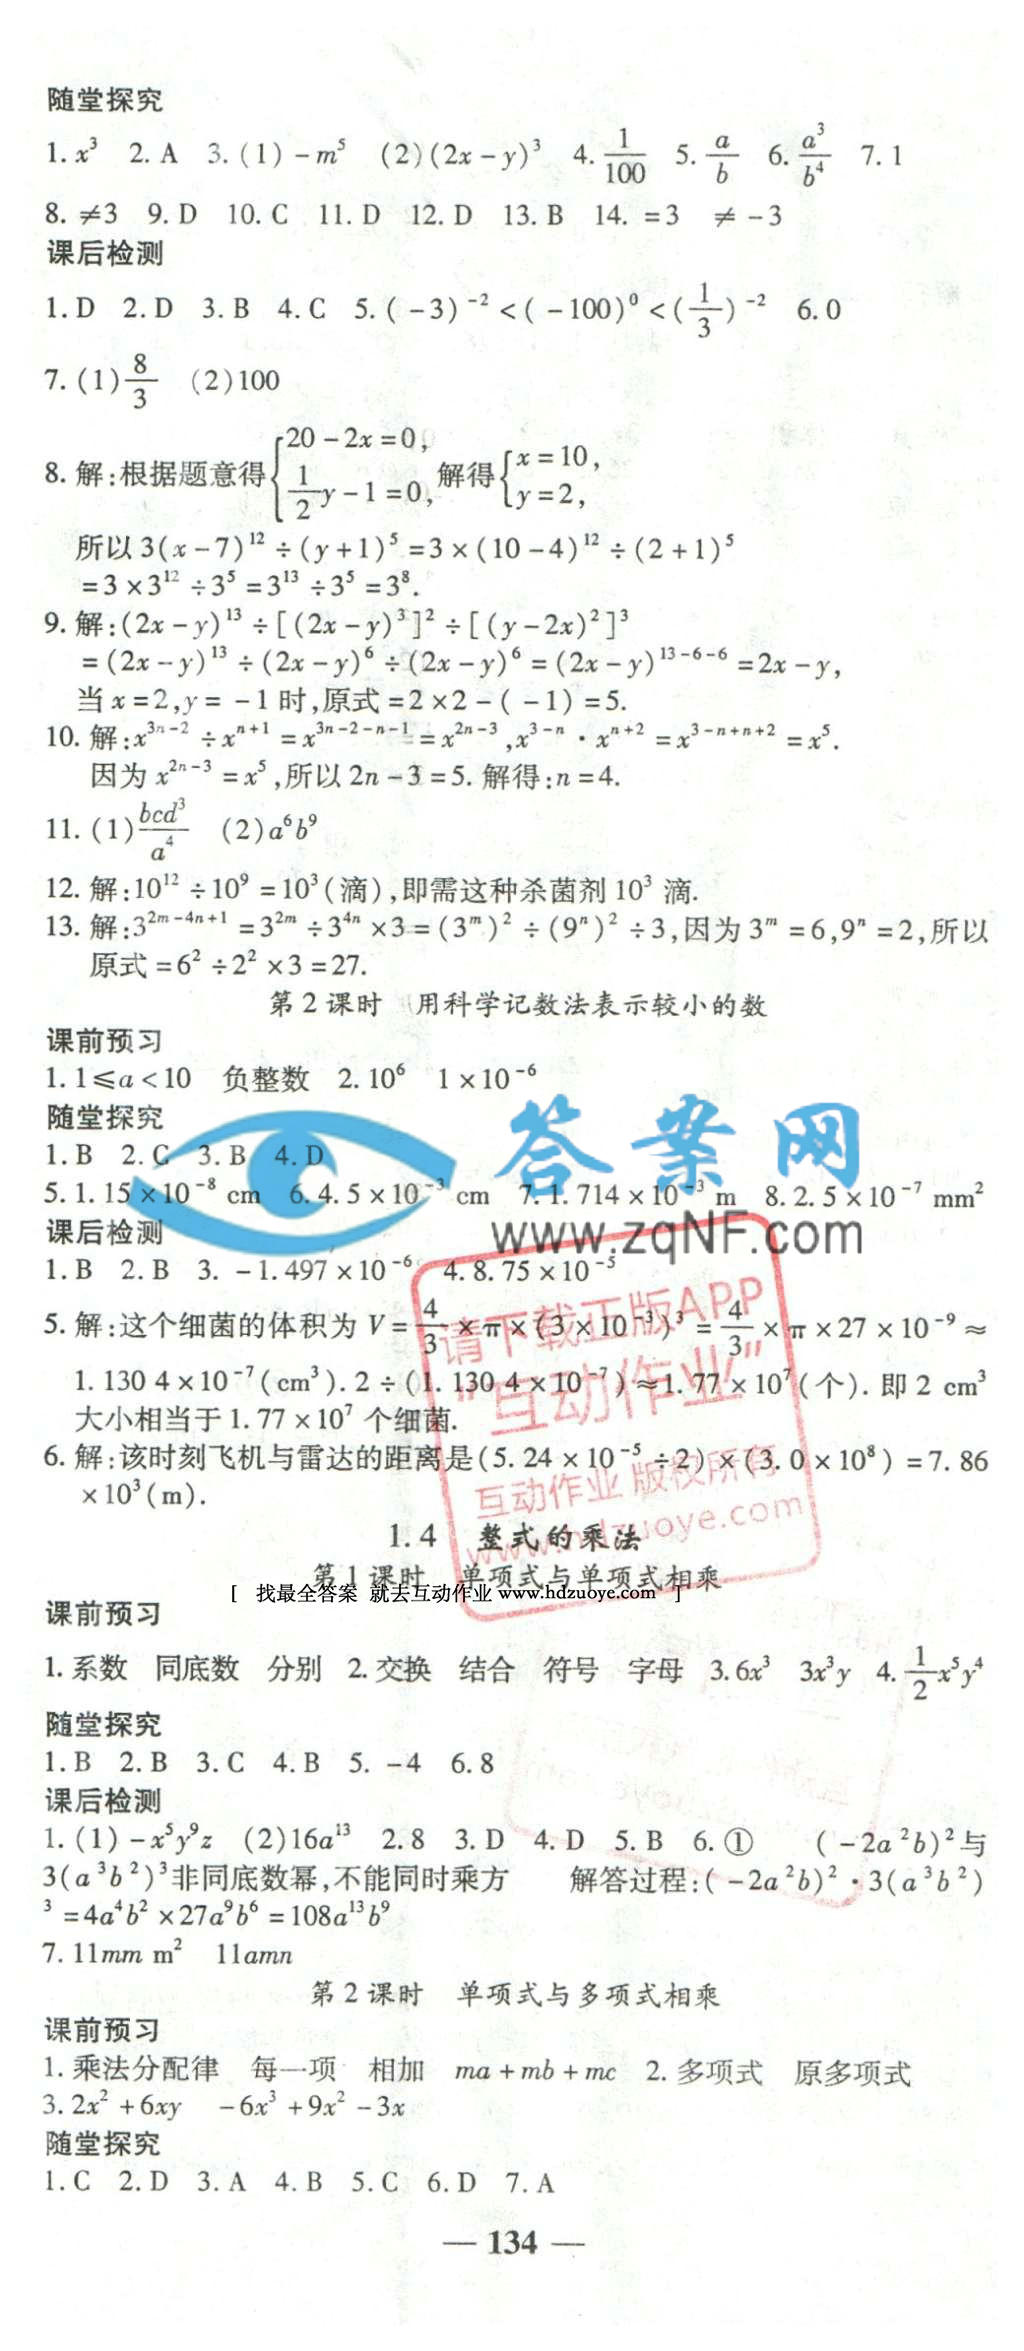 随堂探究
1. x³ 2. A 3. (1) -m⁵ (2)(2x-y)³ 4. 1/100 5. a/b 6. a³/b⁴ 7. 1
8. ≠3 9. D 10. C 11. D 12. D 13. B 14. =3 ≠-3
课后检测
1. D 2. D 3. B 4. C 5. (-3)⁻²<(-100)⁰<(1/3)⁻² 6. 0
7. (1) 8/3 (2)100
8. 解:根据题意得{20-2x=0, 1/2 y-1=0, 解得{x=10, y=2,
所以 3(x-7)¹²÷(y+1)⁵=3×(10-4)¹²÷(2+1)⁵
=3×3¹²÷3⁵=3¹³÷3⁵=3⁸.
9. 解:(2x-y)¹³÷[(2x-y)³]²÷[(y-2x)²]³
=(2x-y)¹³÷(2x-y)⁶÷(2x-y)⁶=(2x-y)¹³⁻⁶⁻⁶=2x-y,
当 x=2,y=-1 时,原式=2×2-(-1)=5.
10. 解:x³ⁿ⁻²÷xⁿ⁺¹=x³ⁿ⁻²⁻ⁿ⁻¹=x²ⁿ⁻³,x³⁻ⁿ·xⁿ⁺²=x³⁻ⁿ⁺ⁿ⁺²=x⁵.
因为 x²ⁿ⁻³=x⁵,所以 2n-3=5. 解得:n=4.
11. (1) bcd³/a⁴ (2)a⁶b⁹
12. 解:10¹²÷10⁹=10³(滴),即需这种杀菌剂 10³ 滴.
13. 解:3²ᵐ⁻⁴ⁿ⁺¹=3²ᵐ÷3⁴ⁿ×3=(3ᵐ)²÷(9ⁿ)²÷3,因为 3ᵐ=6,9ⁿ=2,所以
原式=6²÷2²×3=27.
第 2 课时 用科学记数法表示较小的数
课前预习
1. 1≤a<10 负整数 2. 10⁶ 1×10⁻⁶
随堂探究
1. B 2. C 3. B 4. D
5. 1.15×10⁻⁸ cm 6. 4.5×10⁻³ cm 7. 1.714×10⁻³ m 8. 2.5×10⁻⁷ mm²
答案网
www.zqNF.com
课后检测
1. B 2. B 3. -1.497×10⁻⁶ 4. 8.75×10⁻⁵
5. 解:这个细菌的体积为 V=4/3×π×(3×10⁻³)³=4/3×π×27×10⁻⁹≈
1.130 4×10⁻⁷(cm³). 2÷(1.130 4×10⁻⁷)≈1.77×10⁷(个). 即 2 cm³
大小相当于 1.77×10⁷ 个细菌.
6. 解:该时刻飞机与雷达的距离是(5.24×10⁻⁵÷2)×(3.0×10⁸)=7.86
×10³(m).
请下载正版APP
"互动作业"
互动作业 版权所有
www.hdzuoye.com
1.4 整式的乘法
第 1 课时 单项式与单项式相乘
[ 找最全答案 就去互动作业 www.hdzuoye.com ]
课前预习
1. 系数 同底数 分别 2. 交换 结合 符号 字母 3. 6x³ 3x³y 4. 1/2 x⁵y⁴
随堂探究
1. B 2. B 3. C 4. B 5. -4 6. 8
课后检测
1. (1) -x⁵y⁹z (2)16a¹³ 2. 8 3. D 4. D 5. B 6. ① (-2a²b)²与
3(a³b²)³非同底数幂,不能同时乘方 解答过程:(-2a²b)²·3(a³b²)
³=4a⁴b²×27a⁹b⁶=108a¹³b⁹
7. 11mm m² 11amn
第 2 课时 单项式与多项式相乘
课前预习
1. 乘法分配律 每一项 相加 ma+mb+mc 2. 多项式 原多项式
3. 2x²+6xy -6x³+9x²-3x
随堂探究
1. C 2. D 3. A 4. B 5. C 6. D 7. A
— 134 —